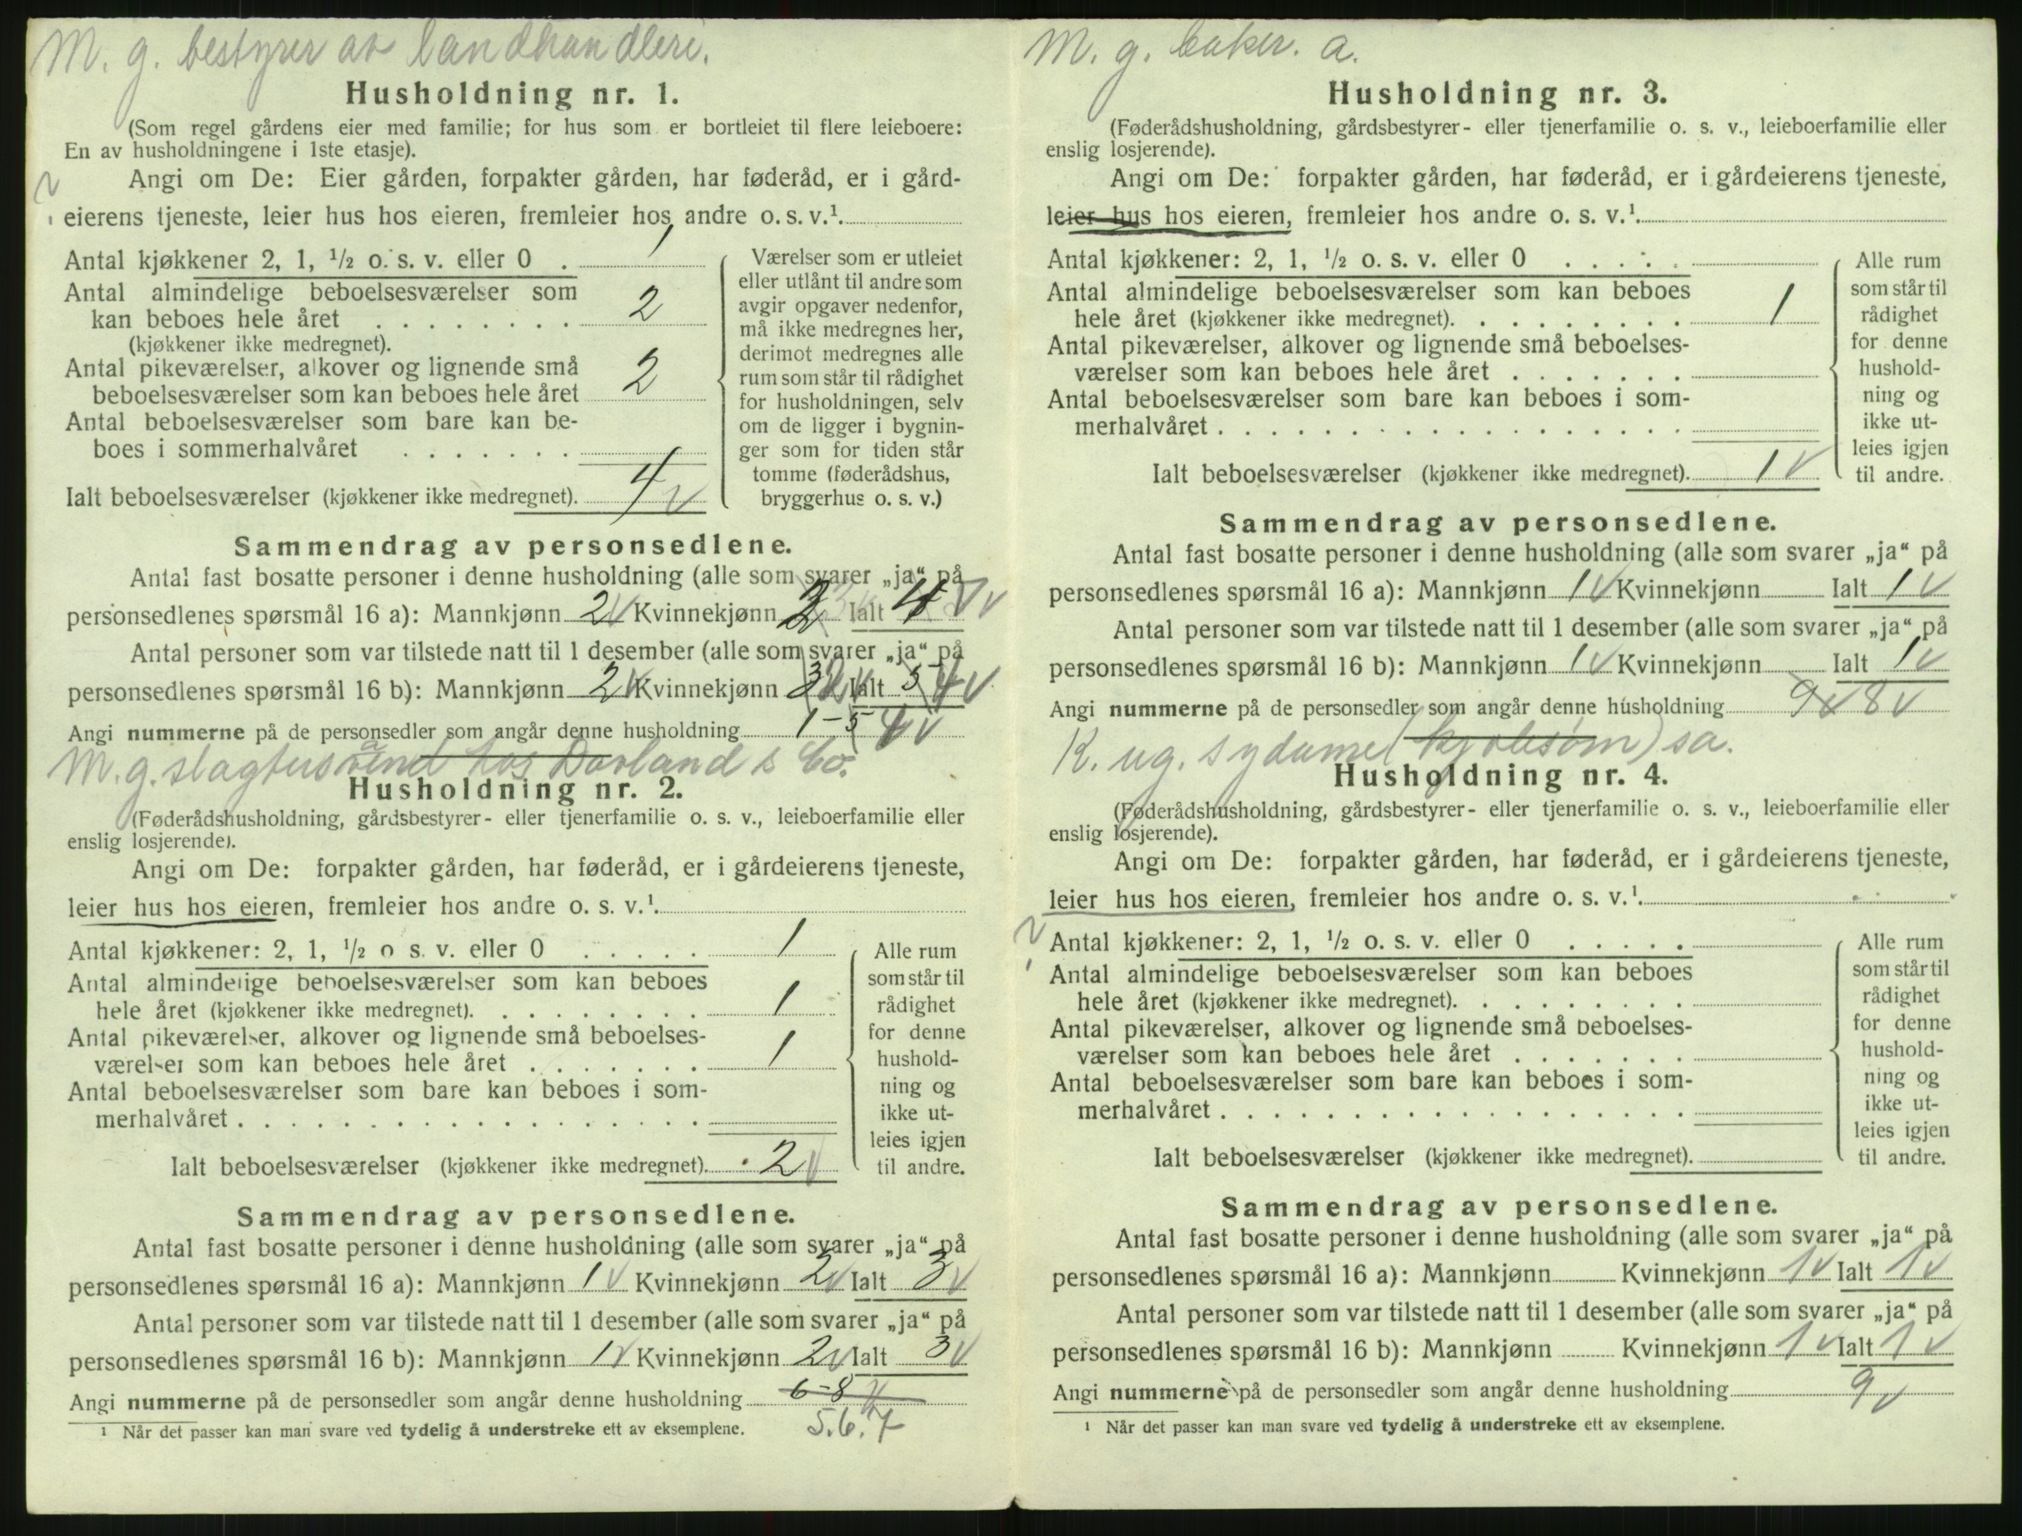 M. g. bestyrer av landhandleri.
Husholdning nr. 1.
(Som regel gårdens eier med familie; for hus som er bortleiet til flere leieboere:
En av husholdningene i 1ste etasje).
Angi om De: Eier gården, forpakter gården, har føderåd, er i gård-
eierens tjeneste, leier hus hos eieren, fremleier hos andre o. s. v.¹.
Antal kjøkkener 2, 1, ½ o. s. v. eller 0 . 1
Antal almindelige beboelsesværelser som
kan beboes hele året . . . . . . . . 2
(kjøkkener ikke medregnet).
Antal pikeværelser, alkover og lignende små
beboelsesværelser som kan beboes hele året 2
Antal beboelsesværelser som bare kan be-
boes i sommerhalvåret . . . . . . .
Ialt beboelsesværelser (kjøkkener ikke medregnet). 4 v
Værelser som er utleiet
eller utlånt til andre som
avgir opgaver nedenfor,
må ikke medregnes her,
derimot medregnes alle
rum som står til rådighet
for husholdningen, selv
om de ligger i bygnin-
ger som for tiden står
tomme (føderådshus,
bryggerhus o. s. v.)
Sammendrag av personsedlene.
Antal fast bosatte personer i denne husholdning (alle som svarer „ja“ på
personsedlenes spørsmål 16 a): Mannkjønn 2 v Kvinnekjønn 2 Ialt 4 v
Antal personer som var tilstede natt til 1 desember (alle som svarer „ja“ på
personsedlenes spørsmål 16 b): Mannkjønn 2 v Kvinnekjønn 3 2 v Ialt 5 4 v
Angi nummerne på de personsedler som angår denne husholdning 1-5 4 v
M. g. slagtersvend hos Dorland & Co.
Husholdning nr. 2.
(Føderådshusholdning, gårdsbestyrer- eller tjenerfamilie o. s. v., leieboerfamilie eller
enslig losjerende).
Angi om De: forpakter gården, har føderåd, er i gårdeierens tjeneste,
leier hus hos eieren, fremleier hos andre o. s. v.¹.
Antal kjøkkener: 2, 1, ½ o s. v. eller 0 . . . . . 1
Antal almindelige beboelsesværelser som kan beboes
hele året (kjøkkener ikke medregnet). . . . . . . . . 1
Antal pikeværelser, alkover og lignende små beboelses-
værelser som kan beboes hele året . . . . . . . 1
Antal beboelsesværelser som bare kan beboes i som-
merhalvåret . . . . . . . . . . . . . . . . . .
Ialt beboelsesværelser (kjøkkener ikke medregnet). 2 v
Alle rum
som står til
rådighet
for denne
hushold-
ning og
ikke ut-
leies igjen
til andre.
Sammendrag av personsedlene.
Antal fast bosatte personer i denne husholdning (alle som svarer „ja“ på
personsedlenes spørsmål 16 a): Mannkjønn 1 v Kvinnekjønn 2 v Ialt 3 v
Antal personer som var tilstede natt til 1 desember (alle som svarer „ja“ på
personsedlenes spørsmål 16 b): Mannkjønn 1 v Kvinnekjønn 2 v Ialt 3 v
Angi nummerne på de personsedler som angår denne husholdning 6-8
5. 6. 7
¹ Når det passer kan man svare ved tydelig å understreke ett av eksemplene.
M. g. baker. a.
Husholdning nr. 3.
(Føderådshusholdning, gårdsbestyrer- eller tjenerfamilie o. s. v., leieboerfamilie eller
enslig losjerende).
Angi om De: forpakter gården, har føderåd, er i gårdeierens tjeneste,
leier hus hos eieren, fremleier hos andre o. s. v.¹.
Antal kjøkkener: 2, 1, ½ o. s. v. eller 0 . . . . .
Antal almindelige beboelsesværelser som kan beboes
hele året (kjøkkener ikke medregnet). . . . . . . . . 1
Antal pikeværelser, alkover og lignende små beboelses-
værelser som kan beboes hele året . . . . . . .
Antal beboelsesværelser som bare kan beboes i som-
merhalvåret . . . . . . . . . . . . . . . . . .
Ialt beboelsesværelser (kjøkkener ikke medregnet). 1 v
Alle rum
som står til
rådighet
for denne
hushold-
ning og
ikke ut-
leies igjen
til andre.
Sammendrag av personsedlene.
Antal fast bosatte personer i denne husholdning (alle som svarer „ja“ på
personsedlenes spørsmål 16 a): Mannkjønn 1 v Kvinnekjønn Ialt 1 v
Antal personer som var tilstede natt til 1 desember (alle som svarer „ja“ på
personsedlenes spørsmål 16 b): Mannkjønn 1 v Kvinnekjønn Ialt 1 v
Angi nummerne på de personsedler som angår denne husholdning 9 v 8 v
K. ug. sydame (kjolesøm) sa.
Husholdning nr. 4.
(Føderådshusholdning, gårdsbestyrer- eller tjenerfamilie o. s. v., leieboerfamilie eller
enslig losjerende).
Angi om De: forpakter gården, har føderåd, er i gårdeierens tjeneste,
leier hus hos eieren, fremleier hos andre o. s. v.¹.
Antal kjøkkener: 2, 1, ½ o. s. v. eller 0 . . . . .
Antal almindelige beboelsesværelser som kan beboes
hele året (kjøkkener ikke medregnet). . . . . . . . .
Antal pikeværelser, alkover og lignende små beboelses-
værelser som kan beboes hele året . . . . . . .
Antal beboelsesværelser som bare kan beboes i som-
merhalvåret . . . . . . . . . . . . . . . . . .
Ialt beboelsesværelser (kjøkkener ikke medregnet).
Alle rum
som står til
rådighet
for denne
hushold-
ning og
ikke ut-
leies igjen
til andre.
Sammendrag av personsedlene.
Antal fast bosatte personer i denne husholdning (alle som svarer „ja“ på
personsedlenes spørsmål 16 a): Mannkjønn Kvinnekjønn 1 v Ialt 1 v
Antal personer som var tilstede natt til 1 desember (alle som svarer „ja“ på
personsedlenes spørsmål 16 b): Mannkjønn Kvinnekjønn 1 v Ialt 1 v
Angi nummerne på de personsedler som angår denne husholdning 9 v
¹ Når det passer kan man svare ved tydelig å understreke ett av eksemplene.